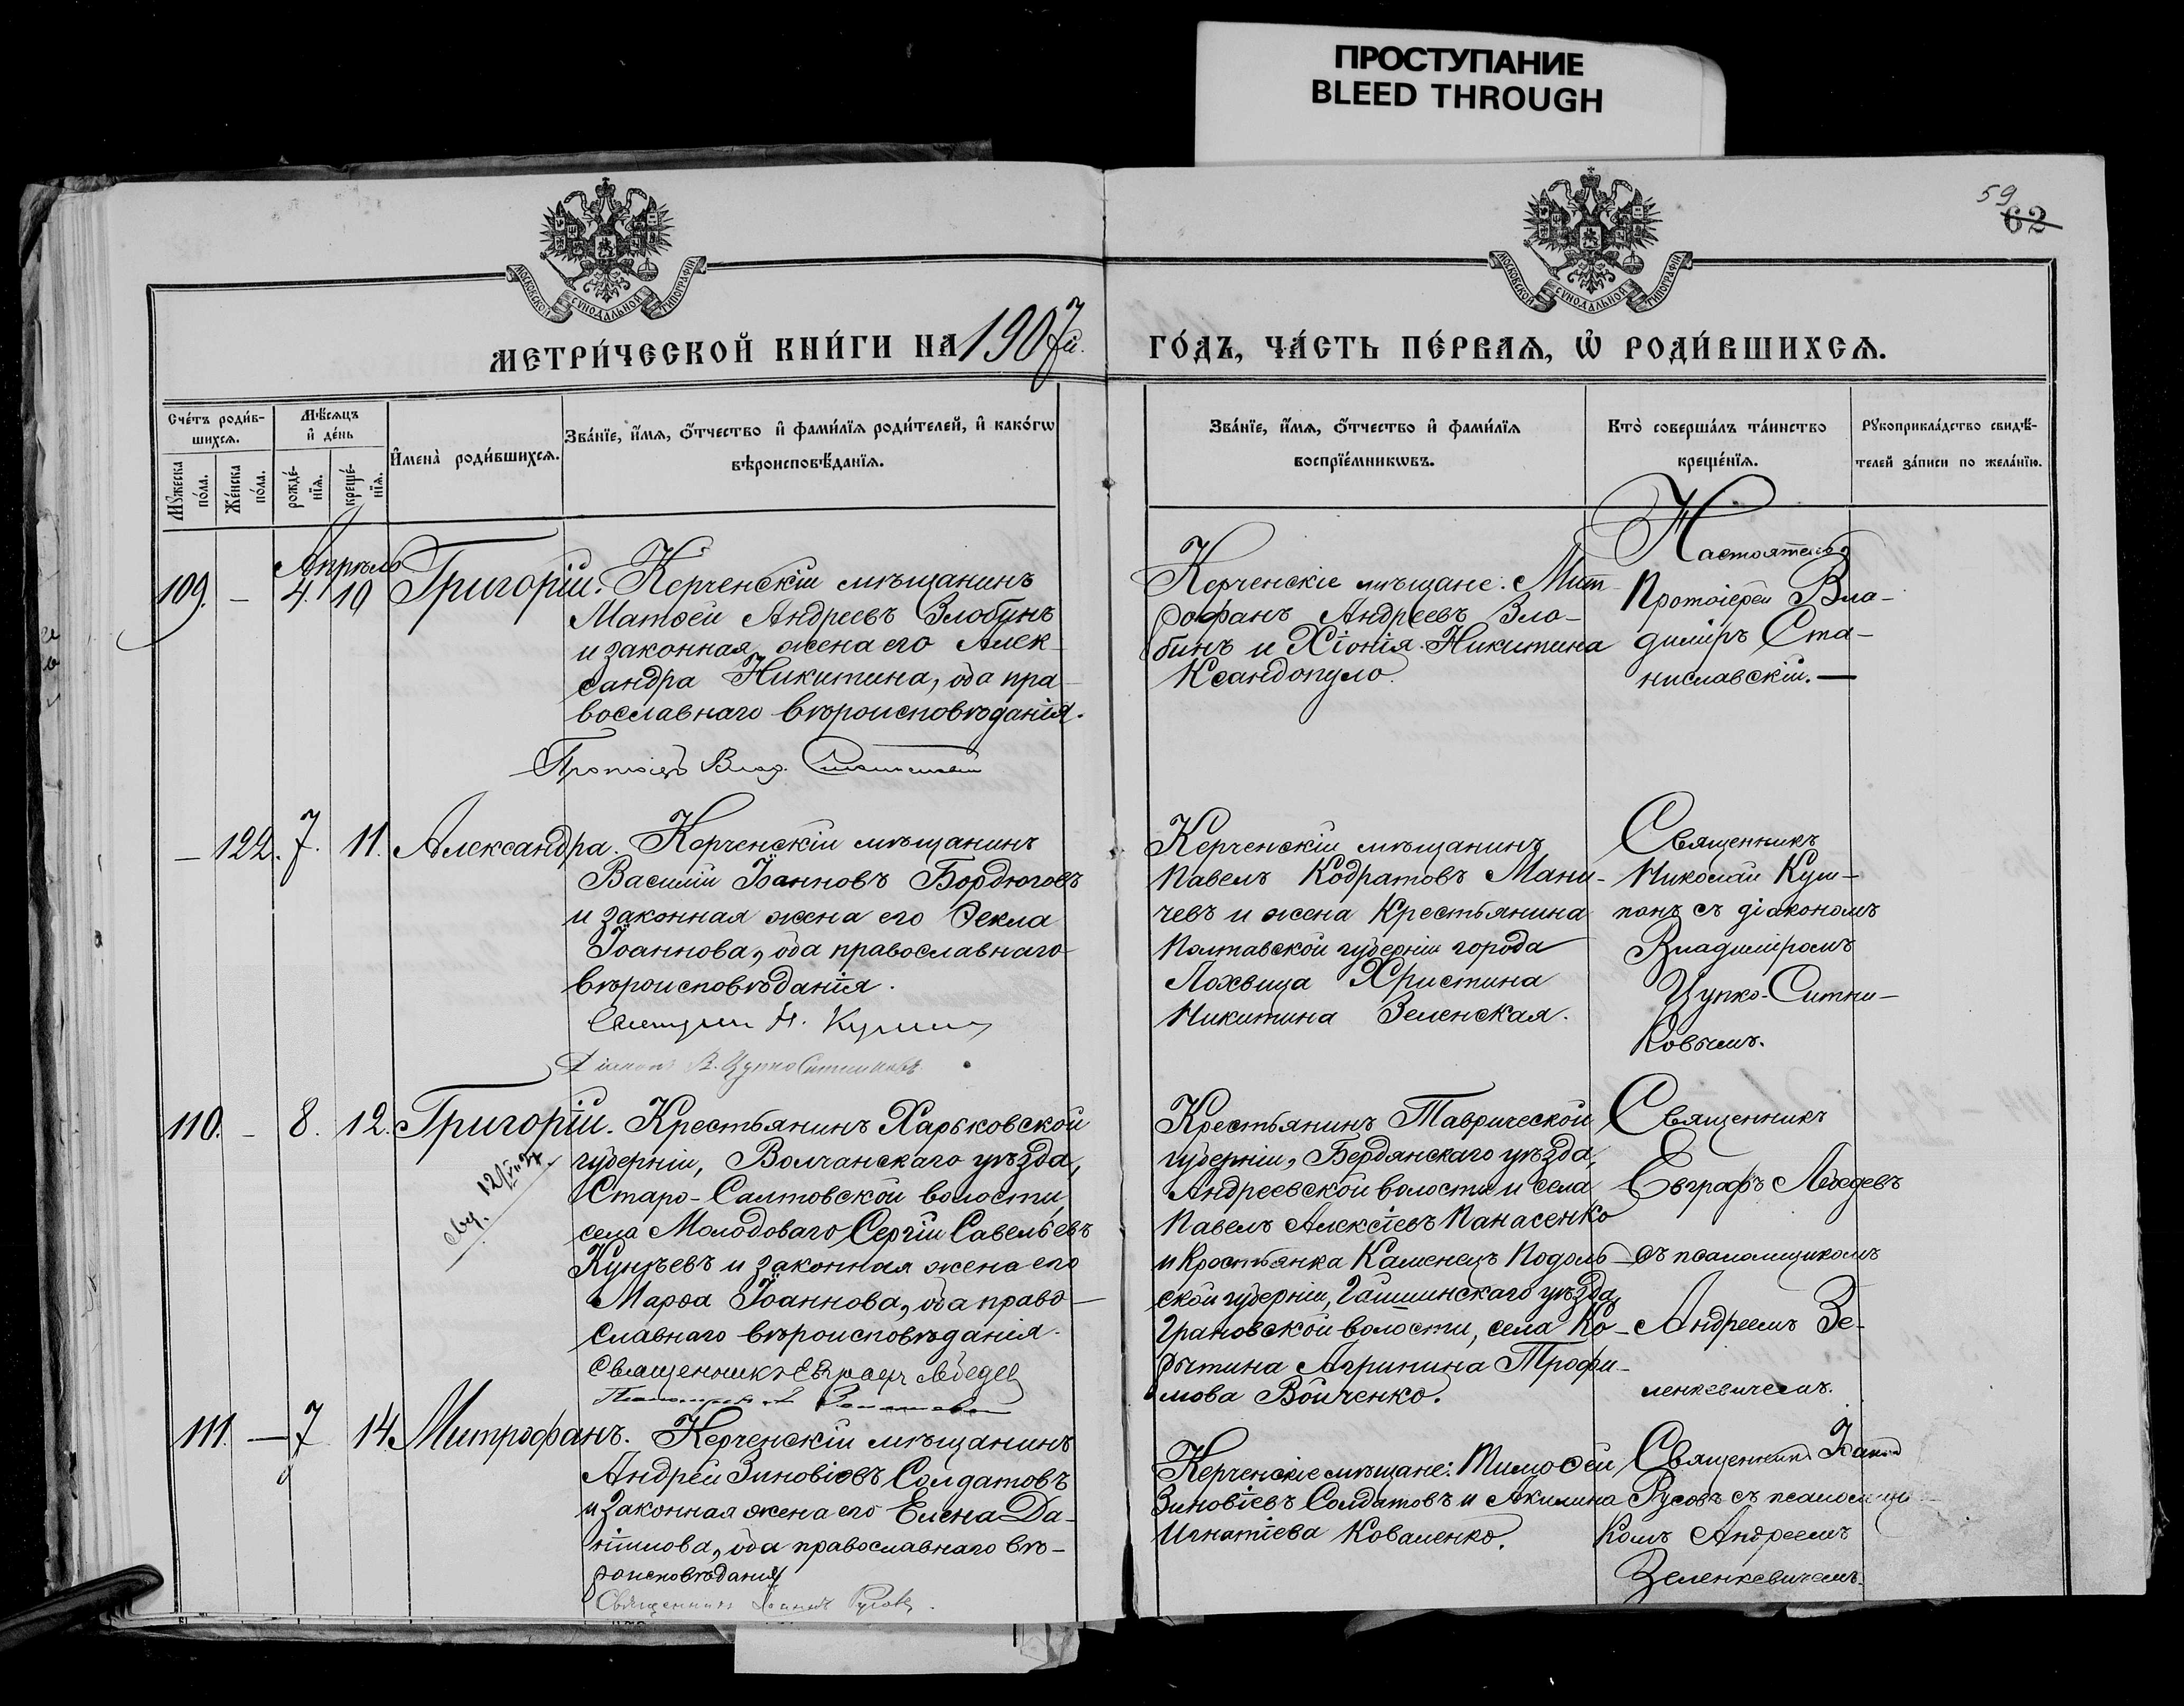 ПРОСТУПАНИЕ
BLEED THROUGH
59
62
МОСКОВСКОЙ СѴНОДАЛЬНОЙ ТИПОГРАФІИ
МОСКОВСКОЙ СѴНОДАЛЬНОЙ ТИПОГРАФІИ
МЕТРИ́ЧЕСКОЙ КНИ́ГИ НА 1907 й.
ГО́ДЪ, ЧА́СТЬ ПЕ́РВАѦ, Ѡ҆ РОДИ́ВШИХСѦ.
Сче́тъ роди́в-
шихсѧ.
Мꙋ́жеска по́ла.
Же́нска по́ла.
Мѣ́сѧцъ
и҆ де́нь
рожде́-
нїѧ.
креще́-
нїѧ.
И҆мена̀ роди́вшихсѧ.
Зва́нїе, и҆́мѧ, ѻ҆́тчество и҆ фами́лїѧ роди́телей, и҆ како́гѡ
вѣроисповѣ́данїѧ.
Зва́нїе, и҆́мѧ, ѻ҆́тчество и҆ фами́лїѧ
воспрїе́мникѡвъ.
Кто̀ соверша́лъ та́инство
креще́нїѧ.
Рꙋкоприкла́дство свидѣ́-
телей за́писи по жела́нїю.
Апрѣль
109. — 4. 10 Григорій. Керченскій мѣщанинъ
Матѳей Андреевъ Злобинъ
и законная жена его Алек-
сандра Никитина, оба пра-
вославнаго вѣроисповѣданія.
Протоіер. Влад.
Керченскіе мѣщане: Мит-
рофанъ Андреевъ Зло-
бинъ и Хіонія Никитина
Ксандопуло.
Настоятель
Протоіерей Вла-
димиръ Ста-
ниславскій. —
— 122. 7. 11. Александра. Керченскій мѣщанинъ
Василій Іоанновъ Бордюговъ
и законная жена его Ѳекла
Іоаннова, оба православнаго
вѣроисповѣданія.
Священник Н.
Діаконъ В. Цупко Ситниковъ.
Керченскій мѣщанинъ
Павелъ Кодратовъ Мани-
чевъ и жена Крестьянина
Полтавской губерніи города
Лохвица Христина
Никитина Зеленская.
Священникъ
Николай Куш-
панъ съ діакономъ
Владиміромъ
Цупко-Ситни-
ковымъ.
110. — 8. 12. Григорій. Крестьянинъ Харьковской
губерніи, Волчанскаго уѣзда,
Старо-Салтовской волости,
села Молодоваго Сергій Савельевъ
Кунѣевъ и законная жена его
Марѳа Іоаннова, оба право-
славнаго вѣроисповѣданія.
Священникъ Евграфъ Лебедев
Крестьянинъ Таврической
губерніи, Бердянскаго уѣзда,
Андреевской волости и села
Павелъ Алексіевъ Панасенко
и Крестьянка Каменецъ Подоль-
ской губерніи, Гайшинскаго уѣзда
Грановской волости, села Ко-
рытина Агрипина Трофи-
мова Войченко.
Священникъ
Евграфъ Лебедевъ
съ псаломщикомъ
Андреемъ Зе-
ленкевичемъ.
111. — 7 14. Митрофанъ. Керченскій мѣщанинъ
Андрей Зиновіевъ Солдатовъ
и законная жена его Елена Да-
ніилова, оба православнаго вѣ-
роисповѣданія
Священникъ Іоаннъ Русовъ.
Керченскіе мѣщане: Тимоѳей
Зиновіевъ Солдатовъ и Акилина
Игнатіева Коваленко.
Священникъ Іоаннъ
Русовъ съ псаломщи-
комъ Андреемъ
Зеленкевичемъ.